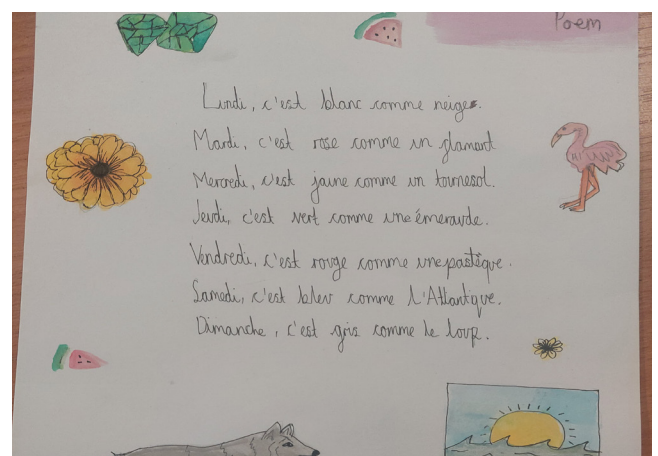 Poem
Lundi, c'est blanc comme neige.
Mardi, c'est rose comme un flamant
Mercredi, c'est jaune comme un tournesol.
Jeudi, c'est vert comme une émeraude.
Vendredi, c'est rouge comme une pastèque.
Samedi, c'est bleu comme l'Atlantique.
Dimanche, c'est gris comme le loup.